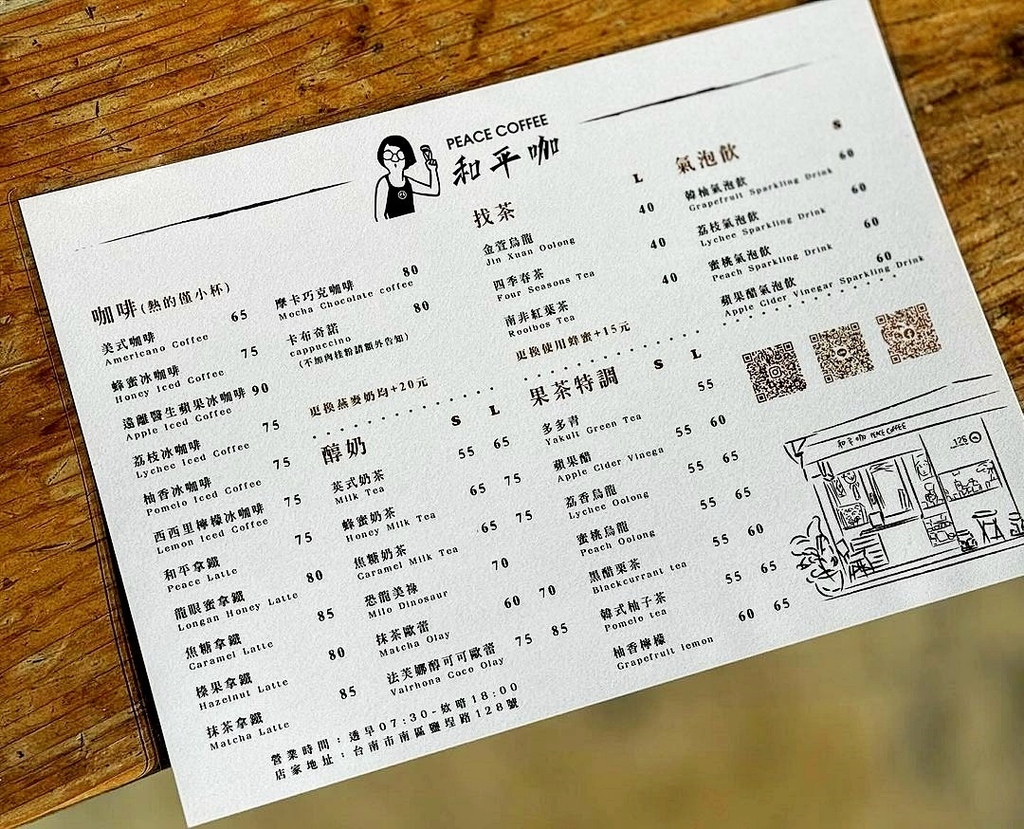 PEACE COFFEE
和平咖
咖啡(熱的僅小杯)
美式咖啡 65
Americano Coffee
蜂蜜冰咖啡 75
Honey Iced Coffee
遠離醫生蘋果冰咖啡 90
Apple Iced Coffee
荔枝冰咖啡 75
Lychee Iced Coffee
柚香冰咖啡 75
Pomelo Iced Coffee
西西里檸檬冰咖啡 75
Lemon Iced Coffee
和平拿鐵 75
Peace Latte
龍眼蜜拿鐵 80
Longan Honey Latte
焦糖拿鐵 85
Caramel Latte
榛果拿鐵 80
Hazelnut Latte
抹茶拿鐵 85
Matcha Latte
摩卡巧克咖啡 80
Mocha Chocolate coffee
卡布奇諾 80
cappuccino
(不加肉桂粉請額外告知)
更換燕麥奶均+20元
醇奶 S L
英式奶茶 55 65
Milk Tea
蜂蜜奶茶 65 75
Honey Milk Tea
焦糖奶茶 65 75
Caramel Milk Tea
恐龍美祿 70
Milo Dinosaur
抹茶歐蕾 60 70
Matcha Olay
法芙娜醇可可歐蕾 75 85
Valrhona Coco Olay
找茶 L
金萱烏龍 40
Jin Xuan Oolong
四季春茶 40
Four Seasons Tea
南非紅葉茶 40
Rooibos Tea
更換使用蜂蜜+15元
果茶特調 S L
多多青 55
Yakult Green Tea
蘋果醋 55 60
Apple Cider Vinega
荔香烏龍 55 65
Lychee Oolong
蜜桃烏龍 55 65
Peach Oolong
黑醋栗茶 55 60
Blackcurrant tea
韓式柚子茶 55 65
Pomelo tea
柚香檸檬 60 65
Grapefruit lemon
氣泡飲 S
韓柚氣泡飲 60
Grapefruit Sparkling Drink
荔枝氣泡飲 60
Lychee Sparkling Drink
蜜桃氣泡飲 60
Peach Sparkling Drink
蘋果醋氣泡飲 60
Apple Cider Vinegar Sparkling Drink
和平咖 PEACE COFFEE
128
營業時間：透早07:30-欸暗18:00
店家地址：台南市南區鹽埕路128號